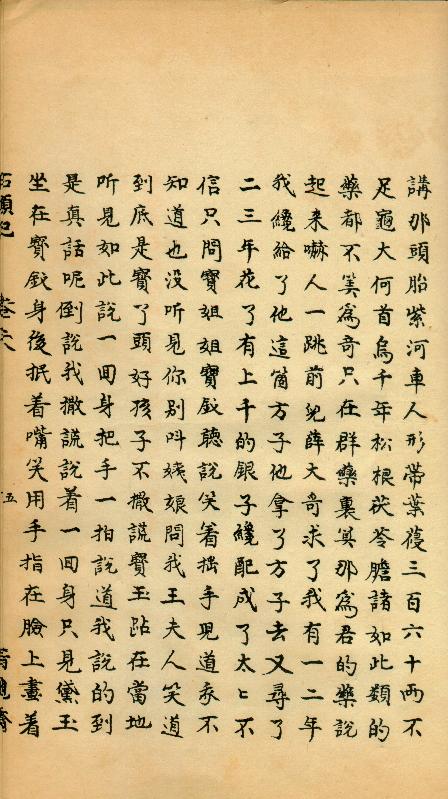 講那頭胎紫河車人形帶葉葠三百六十両不
足龜大何首烏千年松根茯苓膽諸如此類的
藥都不筭爲奇只在群藥裏筭那爲君的藥說
起来嚇人一跳前兒薛大哥求了我有一二年
我纔給了他這箇方子他拿了方子去又尋了
二三年花了有上千的銀子纔配成了太〻不
信只問寶姐姐寶釵聽說笑着搖手児道我不
知道也没听見你別叫姨娘問我王夫人笑道
到底是寶丫頭好孩子不撒謊寶玉跕在當地
听見如此說一囬身把手一拍說道我說的到
是真話呢倒說我撒謊說着一囬身只見黛玉
坐在寳釵身後抿着嘴笑用手指在臉上畫着
石頭記
五